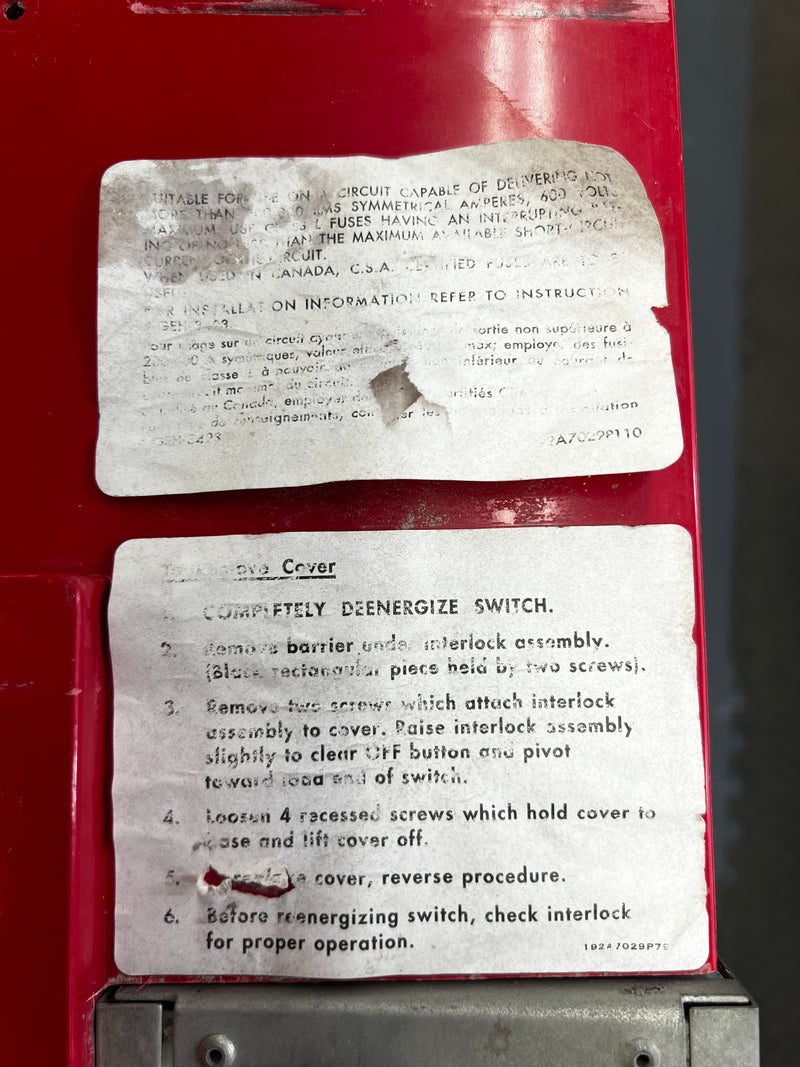 SUITABLE FOR USE ON A CIRCUIT CAPABLE OF DELIVERING NOT
MORE THAN RMS SYMMETRICAL AMPERES, 600 VOLTS
MAXIMUM. USE CLASS L FUSES HAVING AN INTERRUPTING RAT-
ING OF NO LESS THAN THE MAXIMUM AVAILABLE SHORT-CIRCUIT
CURRENT OF THE CIRCUIT.
WHEN USED IN CANADA, C.S.A. CERTIFIED FUSES ARE TO BE
USED.
FOR INSTALLATION INFORMATION REFER TO INSTRUCTION
GEH
Pour usage sur un circuit ayant de sortie non supérieure à
A symétriques, valeur max; employer des fusi-
bles de classe à pouvoir inférieur au courant de
court-circuit maximal du circuit
au Canada, employer des certifiés
de renseignements, les
GEH-3493 P110
To Remove Cover
1. COMPLETELY DEENERGIZE SWITCH.
2. Remove barrier under interlock assembly.
(Black rectangular piece held by two screws).
3. Remove two screws which attach interlock
assembly to cover. Raise interlock assembly
slightly to clear OFF button and pivot
toward load end of switch.
4. Loosen 4 recessed screws which hold cover to
base and lift cover off.
5. replace cover, reverse procedure.
6. Before reenergizing switch, check interlock
for proper operation.
192A7029P79